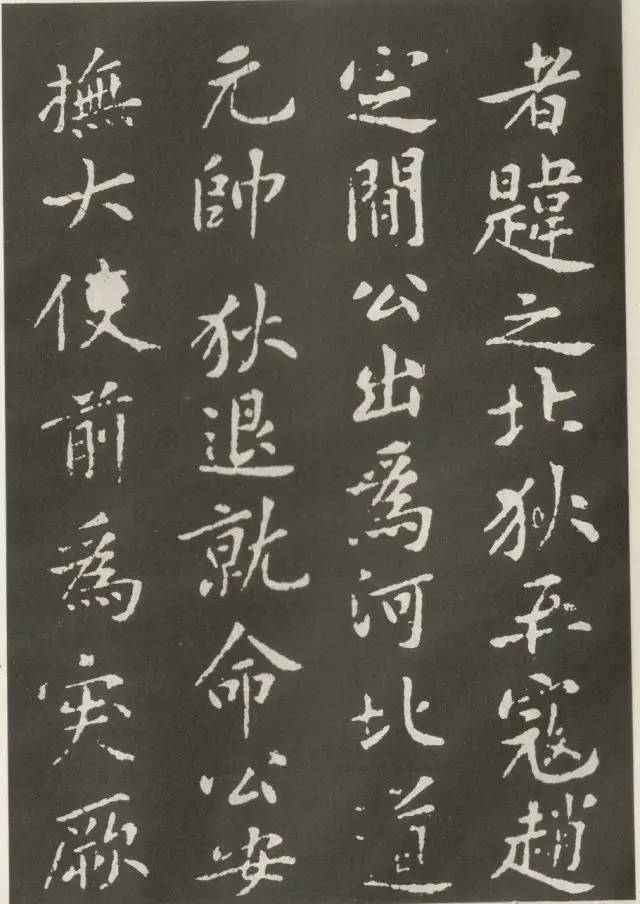 者韙之北狄平寇趙
定間公出爲河北道
元帥狄退就命公安
撫大使前爲突厥